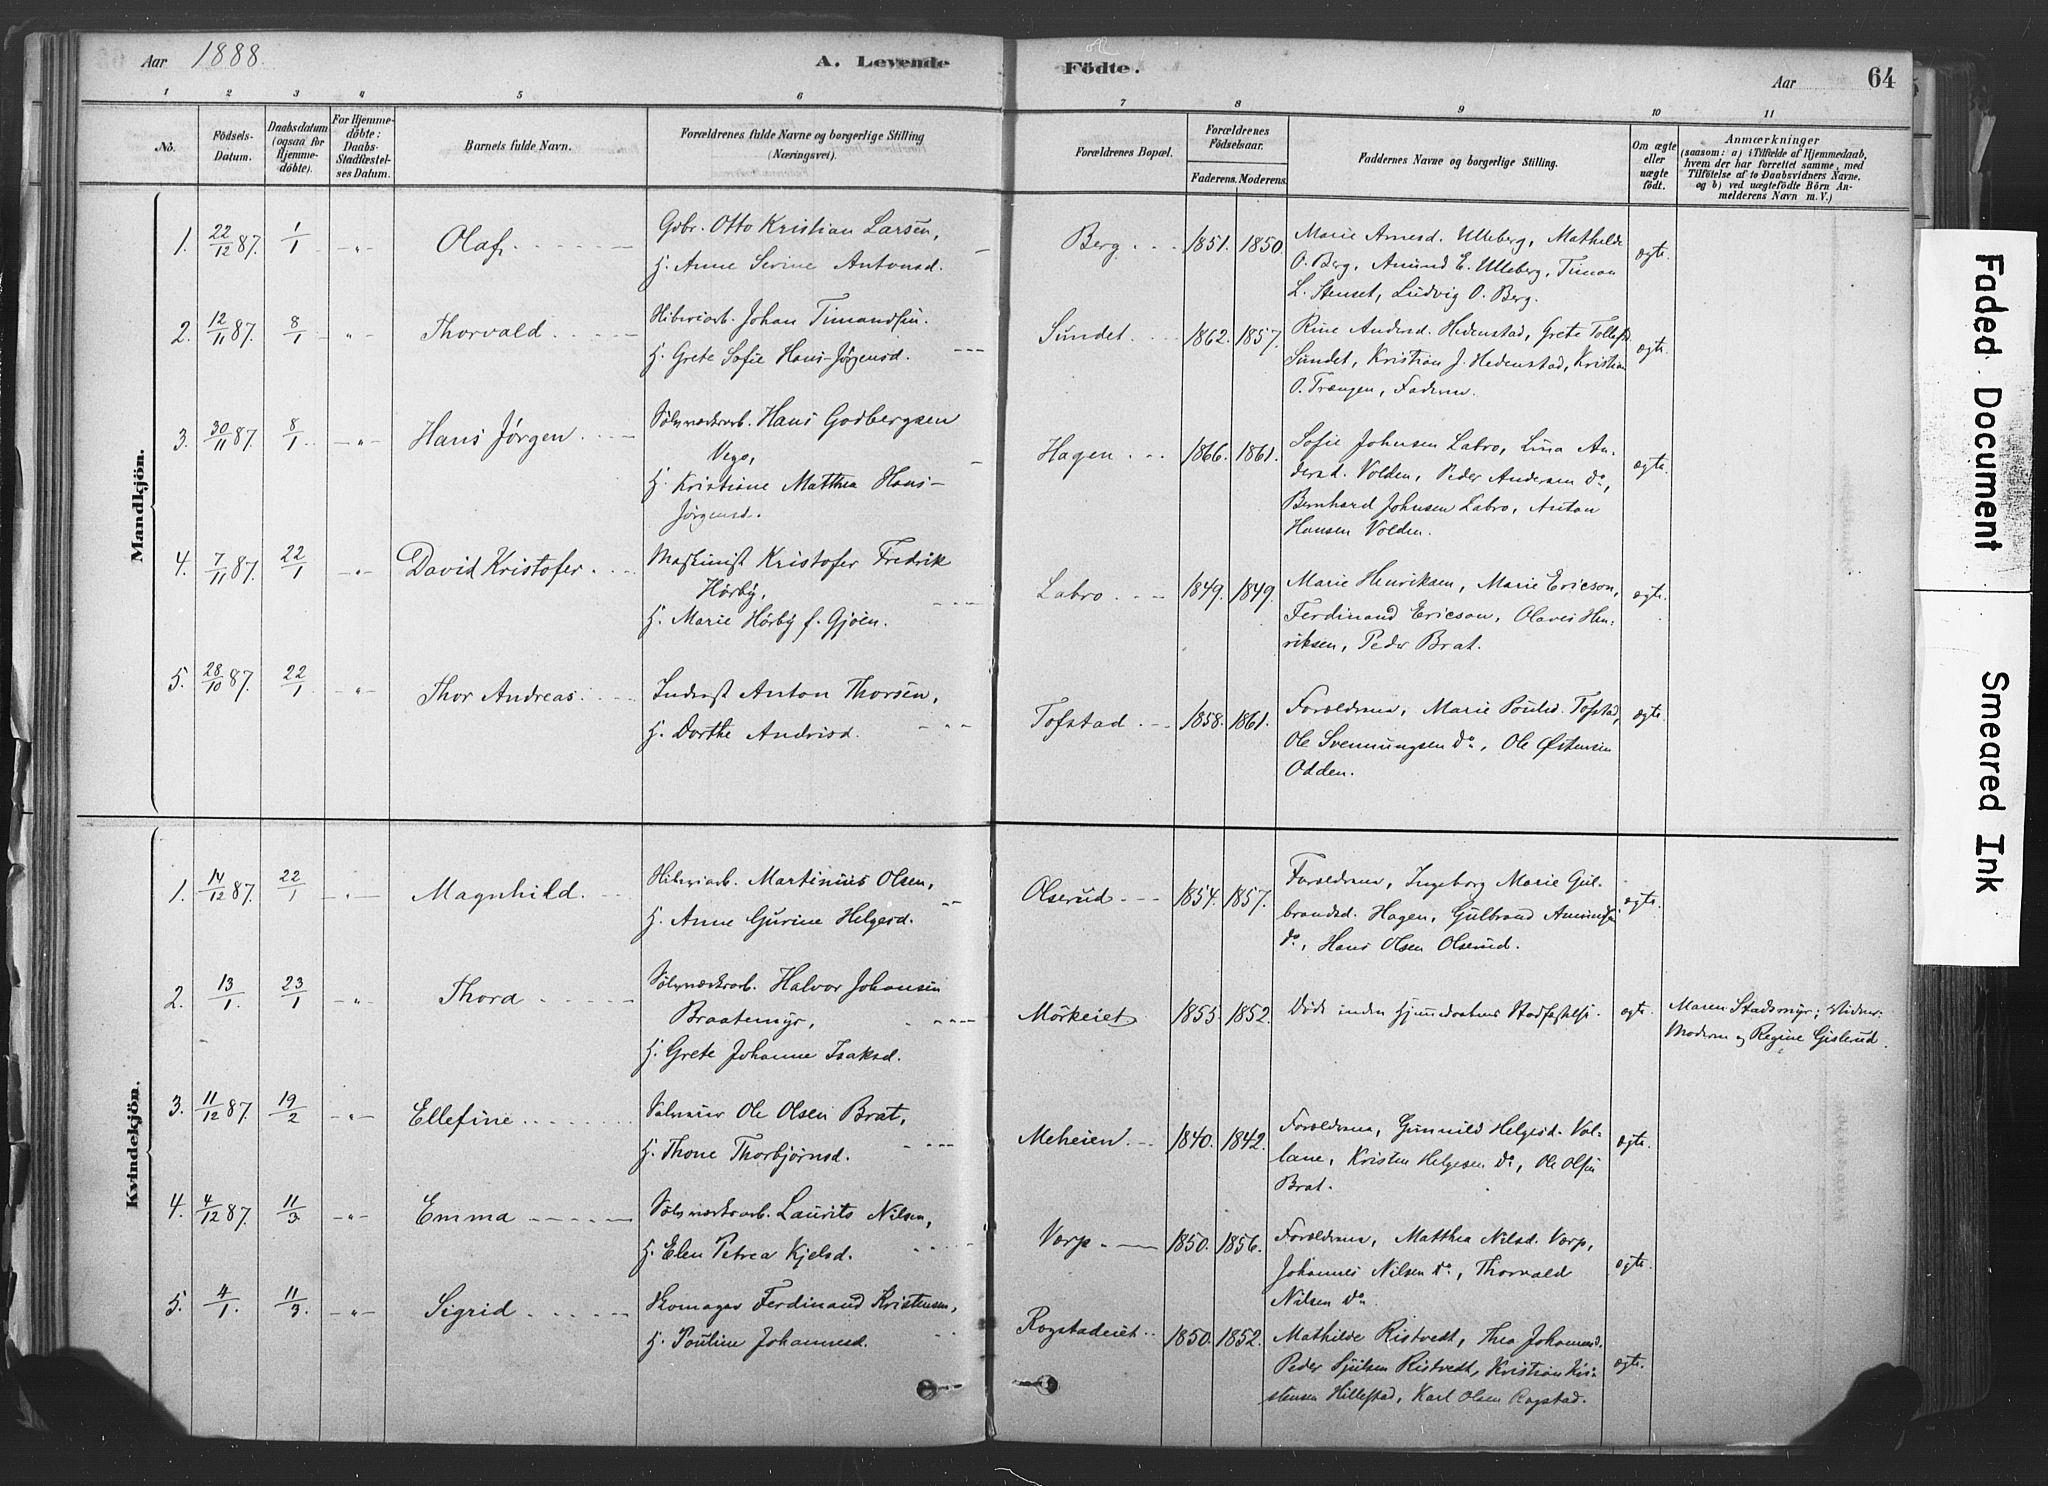 Aar 1888.
A. Levende Födte.
Aar 64
1 2 3 4 5 6 7 8 9 10 11
No.
Födsels-
Datum.
Daabsdatum
(ogsaa for
Hjemme-
döbte).
For Hjemme-
döbte:
Daabs-
Stadfæstel-
ses Datum.
Barnets fulde Navn.
Forældrenes fulde Navne og borgerlige Stilling
(Næringsvei).
Forældrenes Bopæl.
Forældrenes
Födselsaar.
Faderens. Moderens.
Faddernes Navne og borgerlige Stilling.
Om ægte
eller
uægte
födt.
Anmærkninger
(saasom: a) i Tilfælde af Hjemmedaab,
hvem der har forrettet samme, med
Tilföielse af to Daabsvidners Navne.
og b) ved uægtefödte Börn An-
melderens Navn m. V.)
Mandkjön.
1. 22/12 87. 1/1 -"- Olaf.
Gdbr. Otto Kristian Larsen,
H. Anne Serine Antonsd.
Berg. 1851. 1850.
Marie Arnesd. Ulleberg, Mathilde
O. Berg, Amund E. Ulleberg, Timan
L. Stenset, Ludvig O. Berg.
ægte.
2. 12/11 87. 8/1 -"- Thorvald
Johan Timandsen.
H. Grete Sofie Hans-Jørgensd.
Sundet. 1862. 1857.
Rine Andersd. Hedenstad, Grete Tollefsd.
Sundet, Kristian J. Hedenstad, Kristian
O. Trængen, Faderen.
ægte.
3. 30/11 87. 8/1 -"- Hans Jørgen
Sølvværksarb. Hans Godbergsen
H. Kristiane Matthea Hans-
Jørgensd.
Hagen. 1866. 1861.
Sofie Johnsen Labro, Lina An-
dersd. Volden, Peder Andersen do,
Bernhard Johnsen Labro, Anton
Hansen Volden.
ægte.
4. 7/11 87. 22/1 -"- David Kristofer.
Maskinist Kristofer Fredrik
Hørby,
H. Marie Hørby f. Gjøen.
Labro. 1849. 1849.
Marie Henriksen, Marie Ericson,
Ferdinand Ericson, Olaves Hen-
riksen, Peder Brat.
ægte.
5. 28/10 87. 22/1 -"- Thor Andreas.
Inderst Anton Thorsen,
H. Dorthe Andrisd.
Tofstad. 1858. 1861.
Forældrene, Marie Poulsd. Tofstad,
Ole Svennungsen do, Ole Østensen
Odden.
ægte.
Kvindekjön.
1. 14/12 87. 22/1 -"- Magnhild.
Martinius Olsen,
H. Anne Gurine Helgesd.
Olserud 1854. 1857.
Forældrene, Ingeborg Marie Gul-
brandsd. Hagen, Gulbrand Amundsen
do, Hans Olsen Olserud.
ægte.
2. 13/1. 23/1 -"- Thora
Sølvværksarb. Halvor Johansen
Braatemyr,
H. Grete Johanne Isaksd.
Mörkeiet 1855. 1852.
Døde inden Hjemmedaabens Stadfæstelse.
ægte.
Maren Stadsmyr; Vidner:
Moderen og Regine Gislerud.
3. 11/12 87. 19/2 -"- Ellefine
Ole Olsen Brat,
H. Thone Thorbjørnsd.
Meheien 1840. 1842.
Forældrene, Gunnild Helgesd. Vol-
lane, Kristen Helgesen do, Ole Olsen
Brat.
ægte.
4. 4/12 87. 11/3 -"- Emma
Sølvværksarb. Laurits Nilsen,
H. Elen Petrea Kjelsd.
Vorp. 1850. 1856.
Forældrene, Matthea Nilsd. Vorp,
Johannes Nilsen do, Thorvald
Nilsen do.
ægte.
5. 4/1. 11/3. -"- Sigrid
Skomager Ferdinand Kristensen,
H. Pouline Johannesd.
Rogstadeiet 1850. 1852.
Mathilde Ristvedt, Thea Johannesd.
Peder Sjulsen Ristvedt, Kristian Kri-
stensen Hillestad, Karl Olsen Rogstad.
ægte.
Faded Document
Smeared Ink